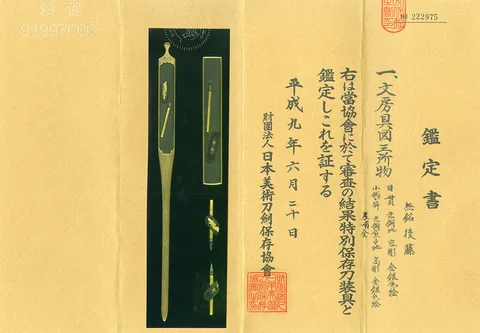 № 222975
鑑定書
一、文房具図三所物
無銘 後藤
目貫 赤銅地 容彫 金銀色絵
小柄・笄 赤銅魚子地 高彫 金銀色絵
右は當協會に於て審査の結果特別保存刀装具と
鑑定しこれを証する
平成九年六月二十日
財團法人 日本美術刀劍保存協會